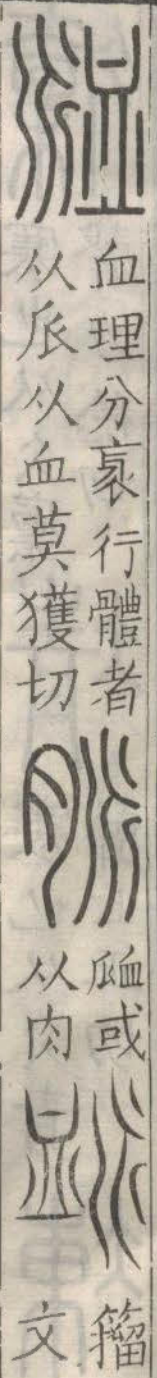 𧖴
血理分衺行體者
从𠂢从血莫獲切
脈
𧖴或
从肉
䘑
籒
文